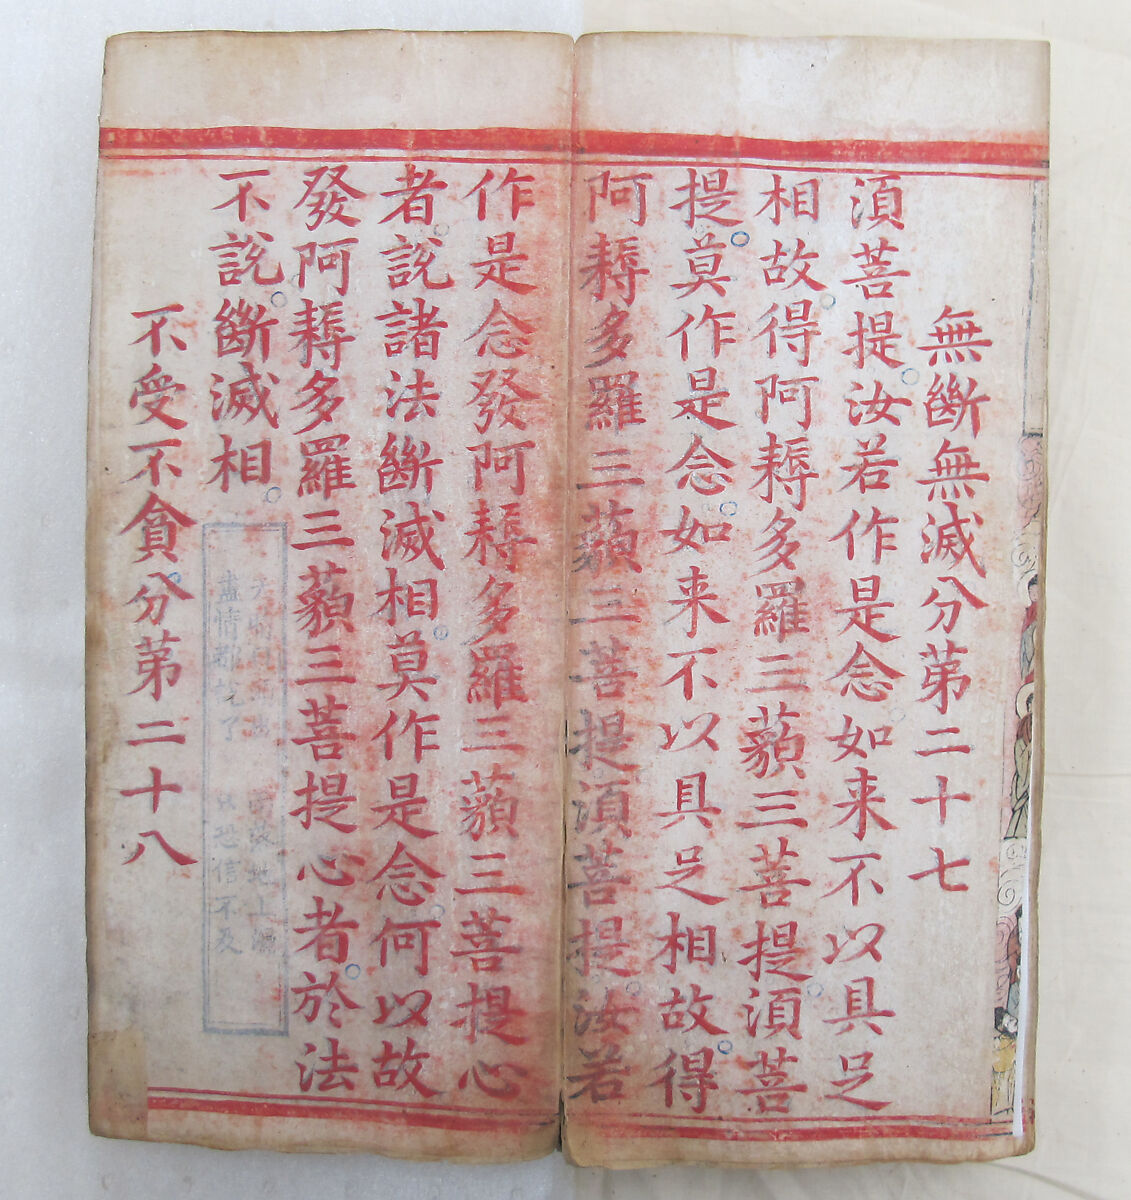 無斷無滅分第二十七
須菩提汝若作是念如来不以具足
相故得阿耨多羅三藐三菩提須菩
提莫作是念如来不以具足相故得
阿耨多羅三藐三菩提須菩提汝若
作是念發阿耨多羅三藐三菩提心
者說諸法斷滅相莫作是念何以故
發阿耨多羅三藐三菩提心者於法
不說斷滅相
盡情都了 恐信不及
不受不貪分第二十八